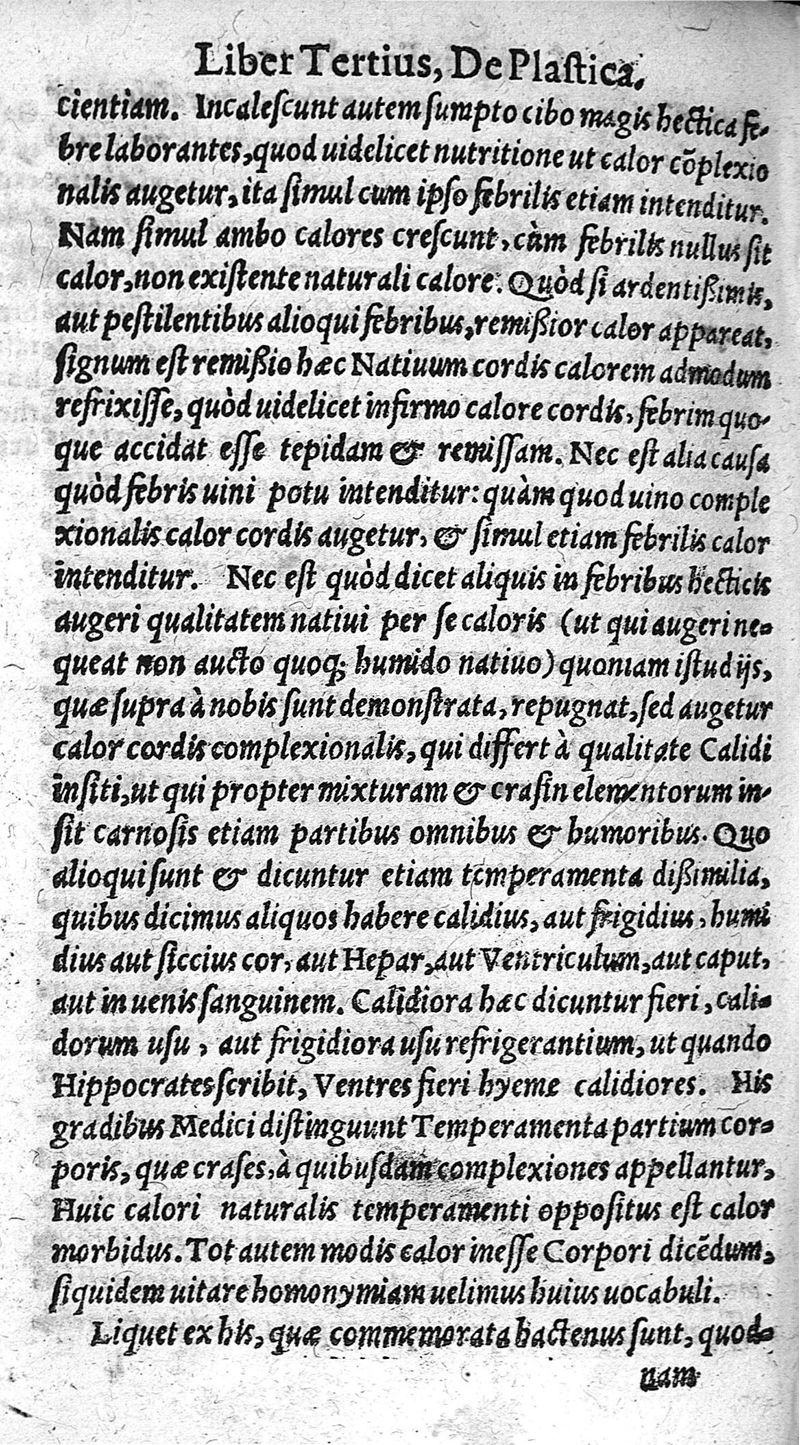 Liber Tertius, De Plastica.
cientiam. Incalescunt autem sumpto cibo magis hectica fe-
bre laborantes, quod uidelicet nutritione ut calor cōplexio
nalis augetur, ita simul cum ipso febrilis etiam intenditur.
Nam simul ambo calores crescunt, cùm febrilis nullus sit
calor, non existente naturali calore. Quòd si ardentißimis,
aut pestilentibus alioqui febribus, remißior calor appareat,
signum est remißio hæc Natiuum cordis calorem admodum
refrixisse, quòd uidelicet infirmo calore cordis, febrim quo-
que accidat esse tepidam & remissam. Nec est alia causa
quòd febris uini potu intenditur: quàm quod uino comple
xionalis calor cordis augetur, & simul etiam febrilis calor
intenditur. Nec est quòd dicet aliquis in febribus hecticis
augeri qualitatem natiui per se caloris (ut qui augeri ne-
queat non aucto quoq; humido natiuo) quoniam istud ijs,
quæ supra à nobis sunt demonstrata, repugnat, sed augetur
calor cordis complexionalis, qui differt à qualitate Calidi
insiti, ut qui propter mixturam & crasin elementorum in-
sit carnosis etiam partibus omnibus & humoribus. Quo
alioqui sunt & dicuntur etiam temperamenta dißimilia,
quibus dicimus aliquos habere calidius, aut frigidius, humi
dius aut siccius cor, aut Hepar, aut Ventriculum, aut caput,
aut in uenis sanguinem. Calidiora hæc dicuntur fieri, cali-
dorum usu, aut frigidiora usu refrigerantium, ut quando
Hippocrates scribit, Ventres fieri hyeme calidiores. His
gradibus Medici distinguunt Temperamenta partium cor-
poris, quæ crases, à quibusdam complexiones appellantur,
Huic calori naturalis temperamenti oppositus est calor
morbidus. Tot autem modis calor inesse Corpori dicēdum,
siquidem uitare homonymiam uelimus huius uocabuli.
Liquet ex his, quæ commemorata hactenus sunt, quod-
nam